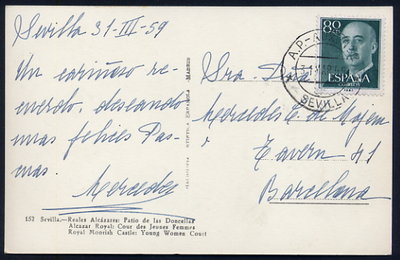 Sevilla 31-III-59
Un cariñoso re-
cuerdo, deseando
unas felices Pas-
cuas.
Mercedes
Sra. Dña
Mercedes C. de Mojem
Tavern 41
Barcelona
80 CTS
ESPAÑA
CORREOS
SEVILLA
152 Sevilla.—Reales Alcázares: Patio de las Doncellas
Alcazar Royal: Cour des Jeunes Femmes
Royal Moorish Castle: Young Women Court